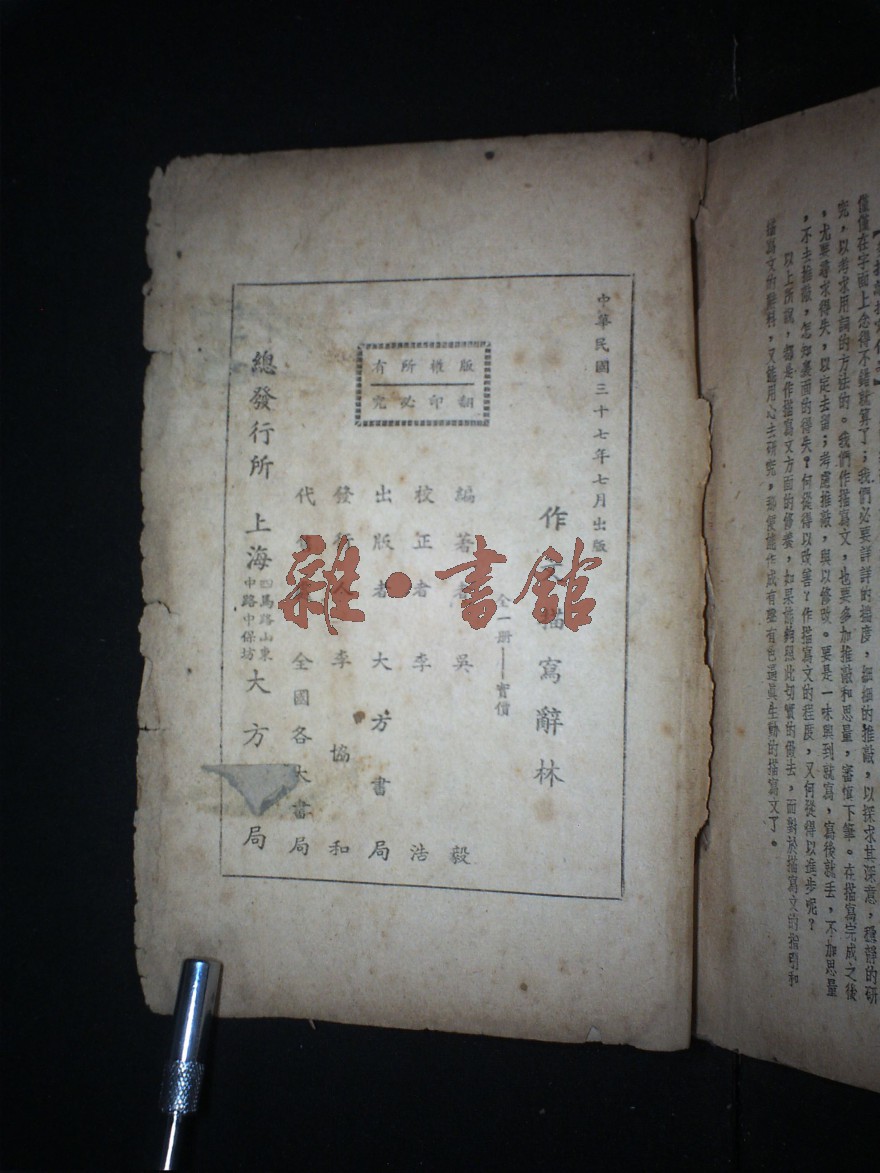 僅僅在字面上念得不錯就算了；我們必要詳詳的揣度，細細的推敲，以探求其深意，穩靜的研
究，以考求用詞的方法的。我們作描寫文，也要多加推敲和思量，審愼下筆。在描寫完成之後
，尤要尋求得失，以定去留；考慮推敲，與以修改。要是一味興到就寫，寫後就丟，不加思量
，不去推敲，怎知裏面的得失？何從得以改善？作描寫文的程度，又何從得以進步呢？
以上所說，都是作描寫文方面的修養，如果能夠照此切實的做去，而對於描寫文的指引和
描寫文的辭料，又能用心去研究，那便能作成有聲有色逼眞生動的描寫文了。
中華民國三十七年七月出版
作文描寫辭林
全一册——實價
版權所有
翻印必究
編著者 吳毅
校正者 李浩
出版者 大方書局
發行人 李協和
代 全國各大書局
總發行所 上海 四馬路山東中路中保坊 大方 局
雜·書館